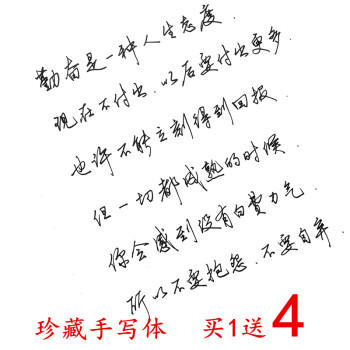 勤奋是一种人生态度.
现在不付出.以后要付出更多.
也许不能立刻得到回报.
但一切都成熟的时候.
你会感到没有白费力气.
所以不要抱怨.不要自弃.
珍藏手写体 买1送4